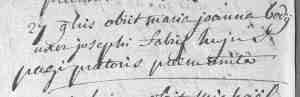 27 9bris obiit maria joanna Body
uxor josephi fabri hujus
pagi prætoris præmunita